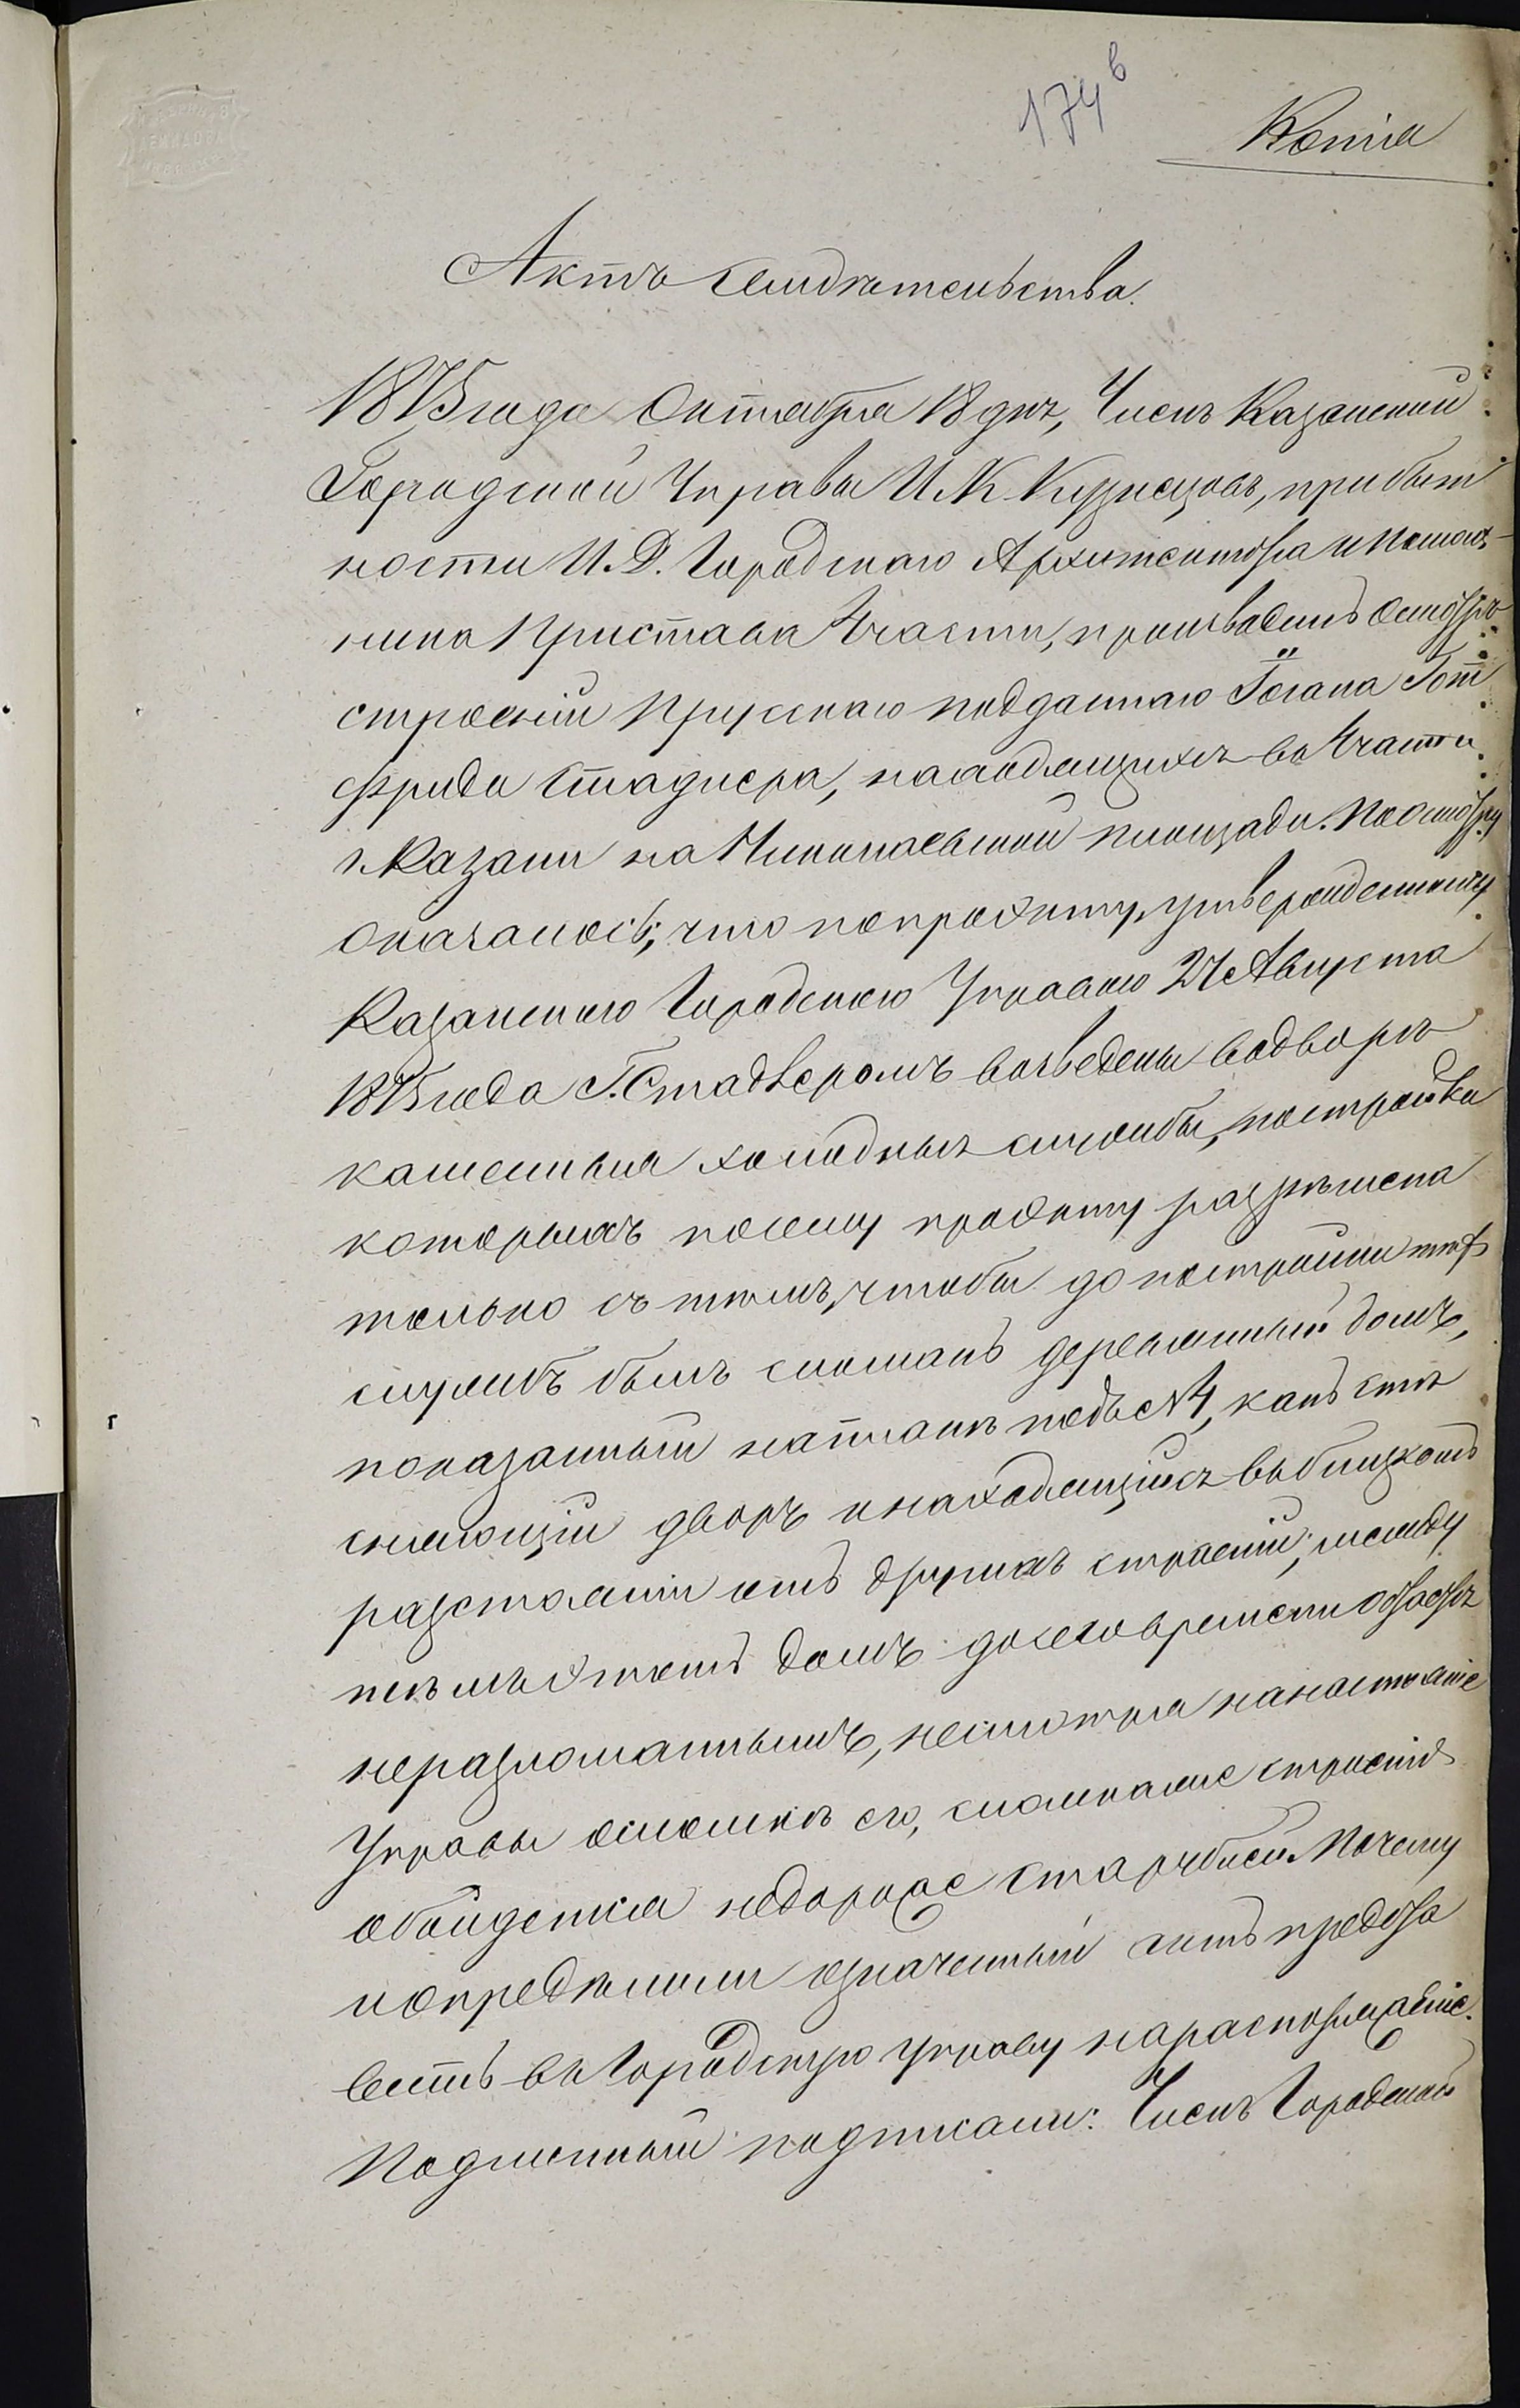 174 в
Копія
Актъ свидѣтельства.
1875 года Октября 18 дня, Членъ Казанской
Городской Управы И. К. Кузнецовъ, при быт
ности И. Д. Городскаго Архитектора и Помощ-
ника Пристава 1 части, произвалъ осмотръ
строеній Прусскаго подданнаго Іогана Гот
фрида Стадлера, находящихся въ 1 части
г. Казани на Николаевской площади. По осмотру
оказалось, что по проэкту, утвержденному
Казанскою Городскою Управою 27 Августа
1875 года Г. Стадлеромъ возведены во дворѣ
каменныя холодныя службы, постройка
которыхъ по сему проэкту разрѣшена
только съ тѣмъ, чтобы до постройки этихъ
службъ былъ сломанъ деревянный домъ,
показанный на планѣ подъ № 4, какъ стѣ
сняющій дворъ и находящійся въ близкомъ
разстояніи отъ другихъ строеній; между
тѣмъ этотъ домъ до сего времени
неразломаннымъ, несмотря на настояніе
Управы о сломкѣ его, сломканіе строенія
обойдется недороже ста рублей. Почему
и опредѣлили означенный актъ предста
вить въ Городскую Управу на распоряженіе.
Подлинный подписали: Членъ Городской